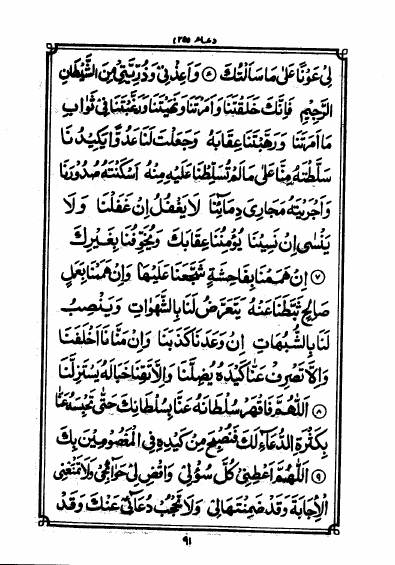 (دعاء ٢٥)
لِيْ عَوْنًا عَلٰى مَا سَاَلْتُكَ ۝٥ وَاَعِذْنِيْ وَذُرِّيَّتِيْ مِنَ الشَّيْطَانِ
الرَّجِيْمِ فَاِنَّكَ خَلَقْتَنَا وَاَمَرْتَنَا وَنَهَيْتَنَا وَرَغَّبْتَنَا فِيْ ثَوَابِ
مَا اَمَرْتَنَا وَرَهَّبْتَنَا عِقَابَهٗ وَجَعَلْتَ لَنَا عَدُوًّا يَكِيْدُنَا
سَلَّطْتَهٗ مِنَّا عَلٰى مَا لَمْ تُسَلِّطْنَا عَلَيْهِ مِنْهُ اَسْكَنْتَهٗ صُدُوْرَنَا
وَاَجْرَيْتَهٗ مَجَارِيَ دِمَائِنَا لَا يَغْفُلُ اِنْ غَفَلْنَا وَلَا
يَنْسٰى اِنْ نَسِيْنَا يُؤْمِنُنَا عِقَابَكَ وَيُخَوِّفُنَا بِغَيْرِكَ
۝٧ اِنْ هَمَمْنَا بِفَاحِشَةٍ شَجَّعَنَا عَلَيْهَا وَاِنْ هَمَمْنَا بِعَمَلٍ
صَالِحٍ ثَبَّطَنَا عَنْهُ يَتَعَرَّضُ لَنَا بِالشَّهَوَاتِ وَيَنْصِبُ
لَنَا بِالشُّبُهَاتِ اِنْ وَعَدَنَا كَذَبَنَا وَاِنْ مَنَّانَا اَخْلَفَنَا
وَاِلَّا تَصْرِفْ عَنَّا كَيْدَهٗ يُضِلَّنَا وَاِلَّا تَقِنَا خَبَالَهٗ يَسْتَزِلَّنَا
۝٨ اَللّٰهُمَّ فَاقْهَرْ سُلْطَانَهٗ عَنَّا بِسُلْطَانِكَ حَتّٰى تَحْبِسَهٗ عَنَّا
بِكَثْرَةِ الدُّعَاءِ لَكَ فَنُصْبِحَ مِنْ كَيْدِهٖ فِي الْمَعْصُوْمِيْنَ بِكَ
۝٩ اَللّٰهُمَّ اَعْطِنِيْ كُلَّ سُؤْلِيْ وَاقْضِ لِيْ حَوَائِجِيْ وَلَا تَمْنَعْنِي
الْاِجَابَةَ وَقَدْ ضَمِنْتَهَا لِيْ وَلَا تَحْجُبْ دُعَائِيْ عَنْكَ وَقَدْ
٩١